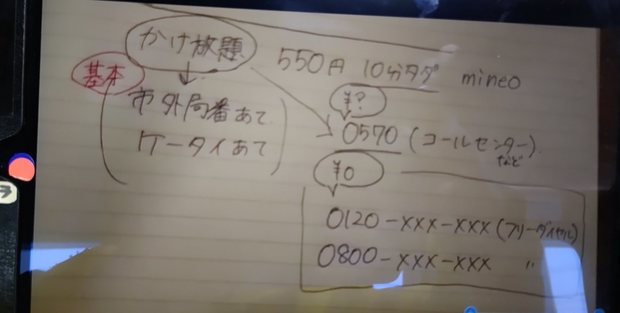 かけ放題
550円 10分タダ mineo
基本
市外局番あて
ケータイあて
¥?
0570 (コールセンター)
など
¥0
0120-xxx-xxx (フリーダイヤル)
0800-xxx-xxx 〃
ラ